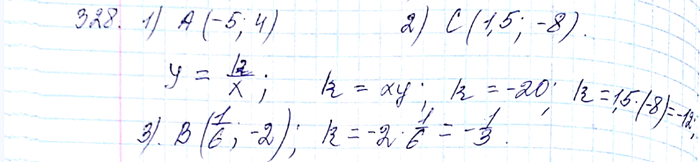 328. 1) A (-5; 4) 2) C (1,5; -8).
y = k/x; k = xy; k = -20; k = 1,5·(-8) = -12;
3). B (1/6; -2); k = -2 · 1/6 = -1/3.